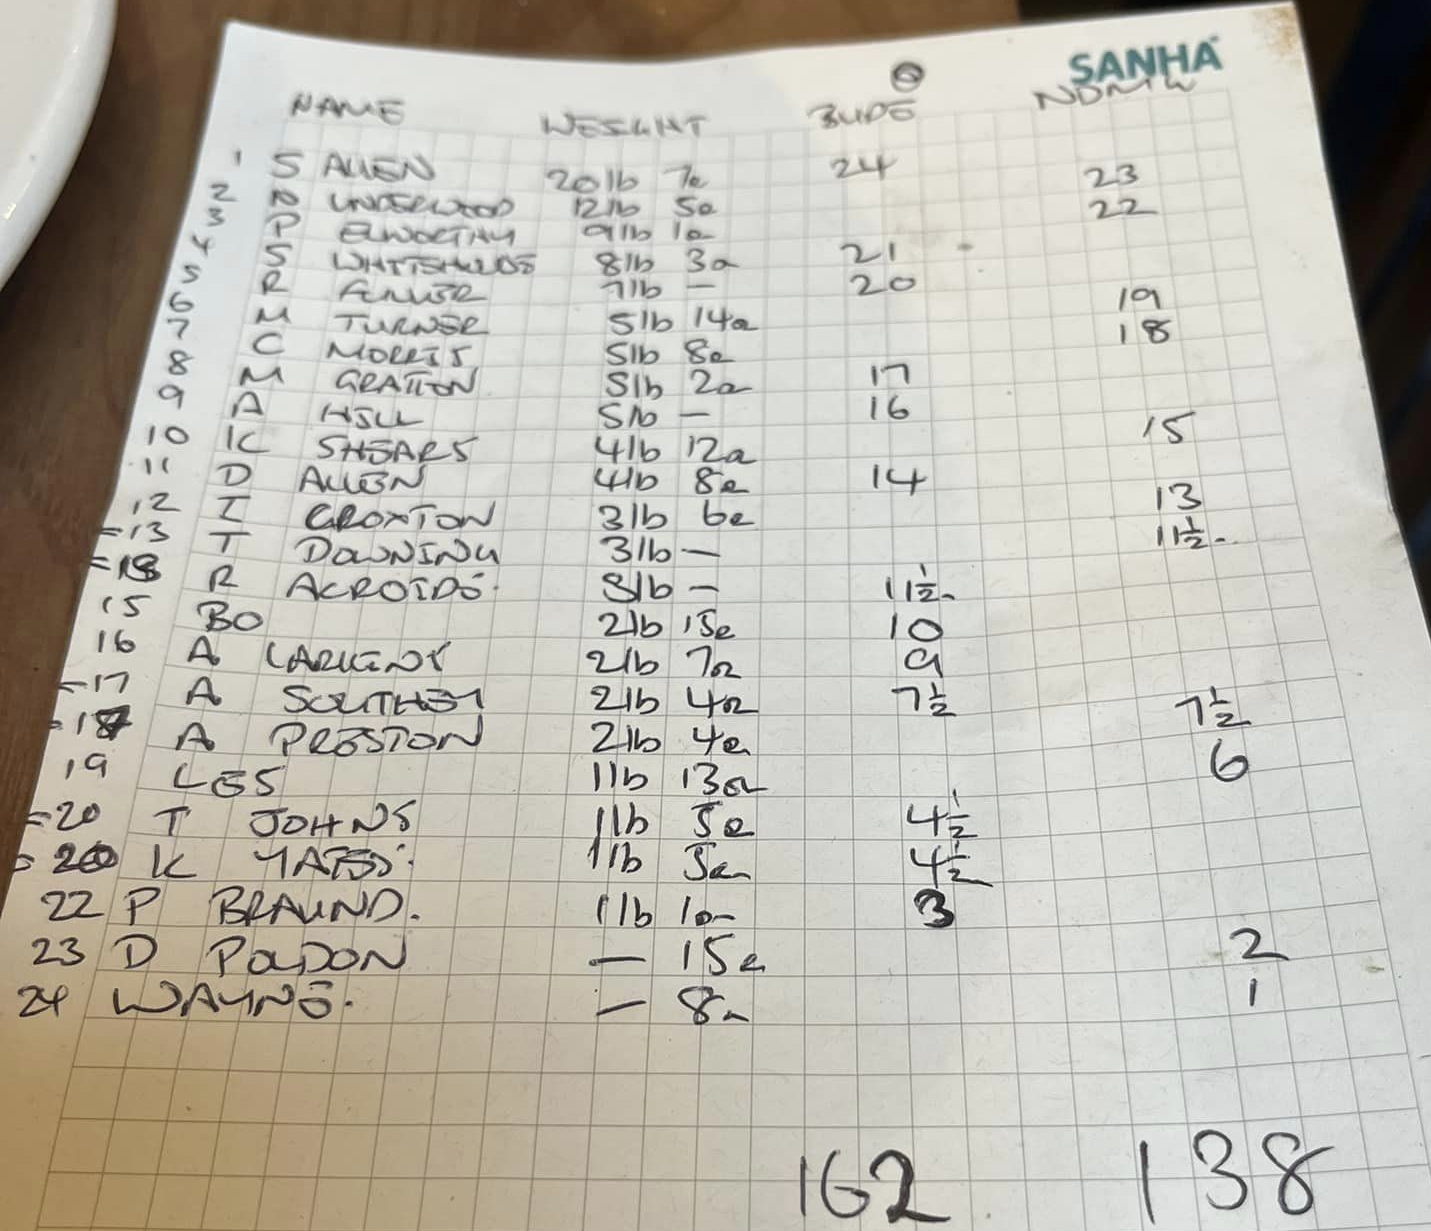 SANHA
NAME WEIGHT BUDE NDMW
1 S ALLEN 20lb 7o 24
2 N UNDERWOOD 12lb 5o 23
3 P ELWORTHY 9lb 1o 22
4 S WHITSHUDE 8lb 3o 21
5 R 7lb - 20
6 M TURNER 5lb 14o 19
7 C MORRIS 5lb 8o 18
8 M GRATTON 5lb 2o 17
9 A HILL 5lb - 16
10 K SHEARS 4lb 12o 15
11 D ALLEN 4lb 8o 14
12 I CROXTON 3lb 6o 13
=13 T DOWNING 3lb - 11½
=13 R ACROIDS. 3lb - 11½
15 BO 2lb 15o 10
16 A LARKINS 2lb 7o 9
=17 A SOUTHEY 2lb 4o 7½
=17 A PRESTON 2lb 4o 7½
19 LES 1lb 13o 6
=20 T JOHNS 1lb 5o 4½
=20 K YATES. 1lb 5o 4½
22 P BRAUND. 1lb 1o 3
23 D POLDON - 15o 2
24 WAYNE. - 8o 1
162 138